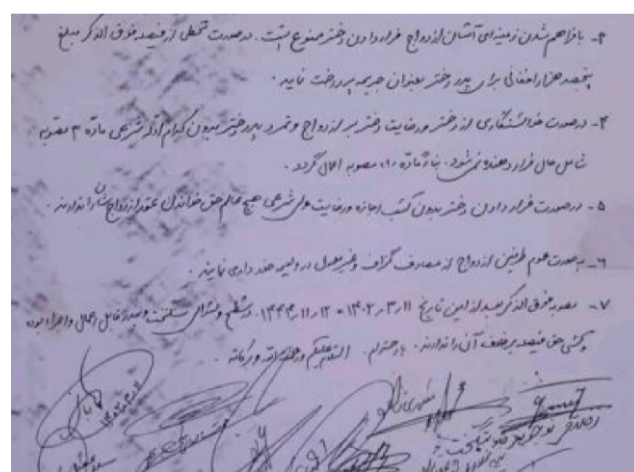 ۳- با فراهم شدن زمینه‌ای آسان ازدواج فرار دادن دختر ممنوع است. در صورت تخطی از فیصله فوق الذکر مبلغ
پنجصد هزار افغانی برای پدر دختر بعنوان جریمه پرداخت نماید.
۴- در صورت خواستگاری از دختر و رضایت دختر بر ازدواج و تمرد پدر دختر بدون کدام ادله شرعی ماده ۳ مصوبه
شامل حال فرار دهنده نمی‌شود. بناءً ماده ۱۰ مصوبه اعمال گردد.
۵- در صورت فرار دادن دختر بدون کسب اجازه و رضایت ولی شرعی هیچ عالم حق خواندن عقد ازدواج شان را ندارند.
۶- بصورت عموم طرفین ازدواج از مصارف گزاف و غیر معمول در ولیمه خودداری نمایند.
۷- مصوبه فوق الذکر بعد از این تاریخ ۱۴۰۲/۳/۱۱ = ۱۴۴۴/۱۱/۱۲ در سطح ولسوالی قابل اعمال و اجراء بوده
کسی حق فیصله برخلاف آن را ندارند. با احترام. السلام علیکم ورحمة الله وبرکاته.